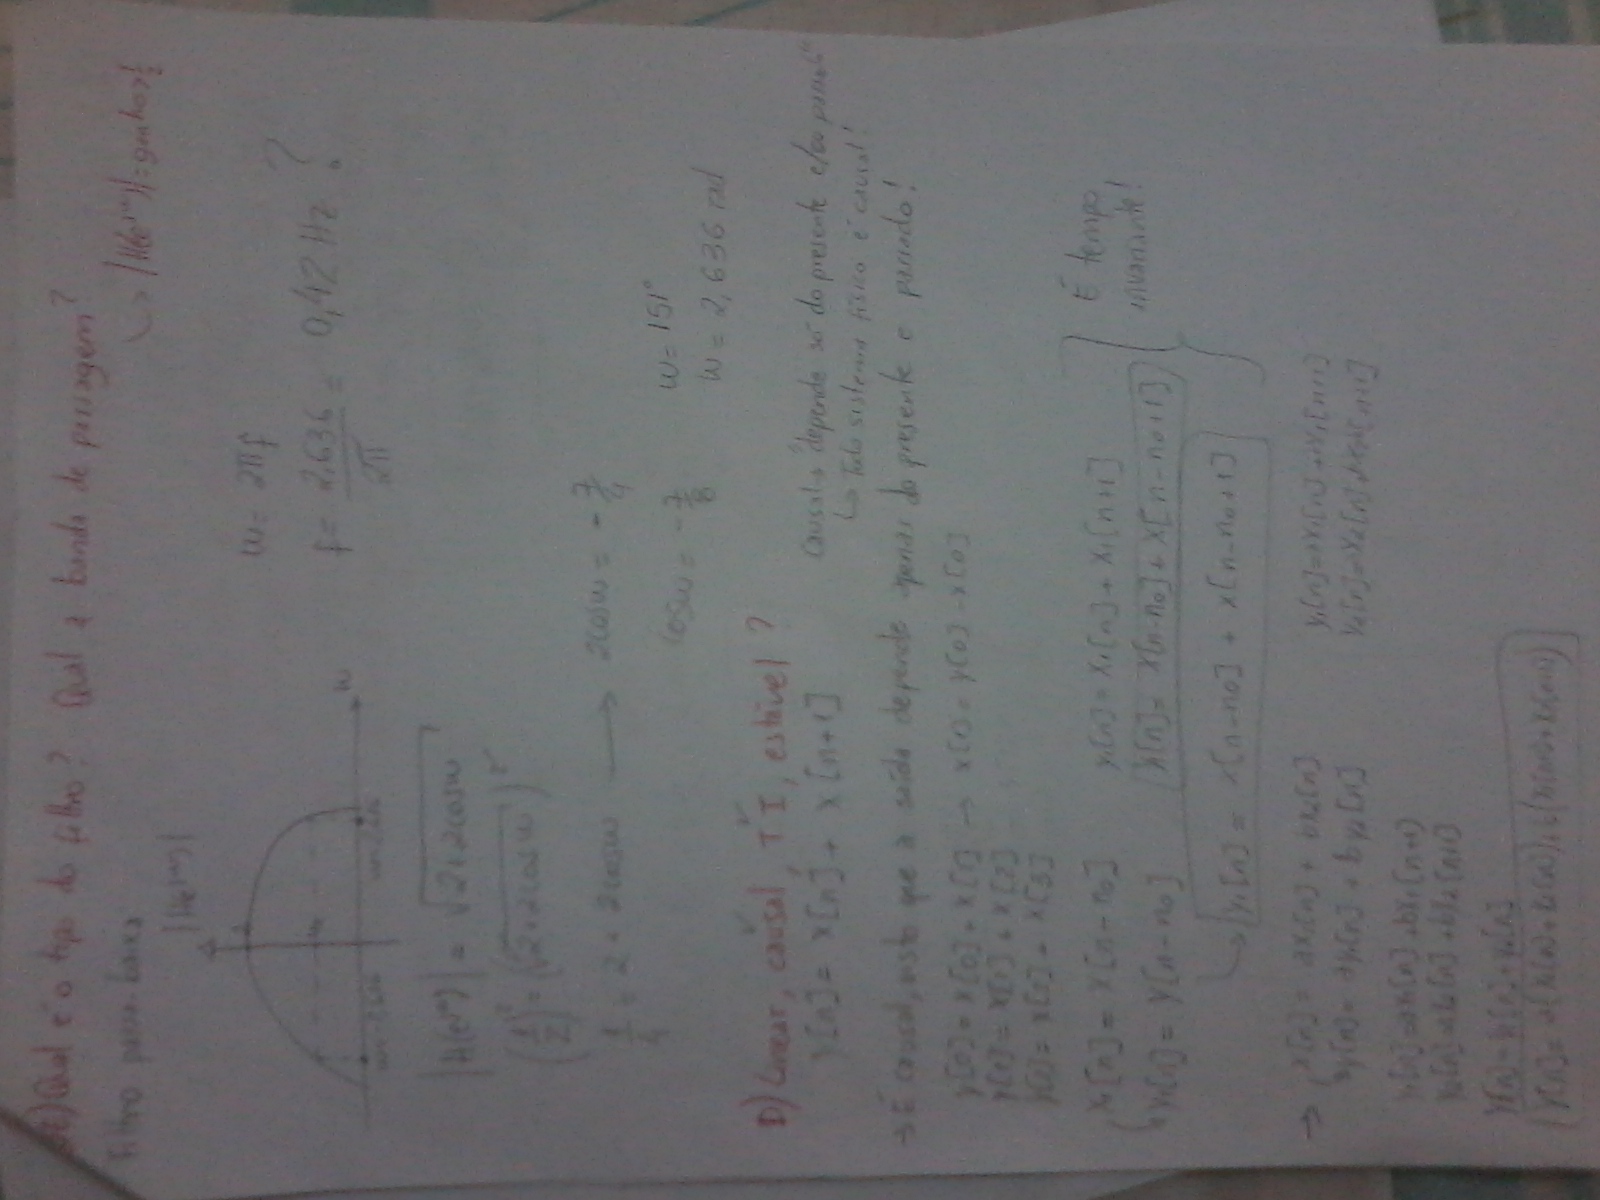 E) Qual é o tipo do filtro? Qual a banda de passagem?
Filtro passa-baixa
↳ |H(e^jw)| = ganho > 1/2
|H(e^jw)|
w
w = 2πf
f = 2,636 / 2π = 0,42 Hz ?
|H(e^jw)| = √(2+2cosw)
(1/2)² = (√(2+2cosw))²
1/4 = 2 + 2cosw → 2cosw = -7/4
cosw = -7/8
w = 151°
w = 2,636 rad
D) Linear, causal, T I, estável ?
y[n] = x[n] + x[n+1]
Causal → "depende só do presente e/ou passado"
↳ Todo sistema físico é causal!
→ É causal, visto que a saída depende apenas do presente e passado!
y[0] = x[0] + x[1] → x[1] = y[0] - x[0]
y[1] = x[1] + x[2]
y[2] = x[2] + x[3]
x1[n] = x[n-n0] y1[n] = x1[n] + x1[n+1]
y1[n] = y[n-n0] y1[n] = x[n-n0] + x[n-n0+1]
É tempo
invariante!
↳ y1[n] = x[n-n0] + x[n-n0+1]
→ x[n] = ax1[n] + bx2[n]
y[n] = ay1[n] + by2[n]
y1[n] = ax1[n] + bx1[n+1]
y2[n] = ax2[n] + bx2[n+1]
y[n] = y1[n] + y2[n]